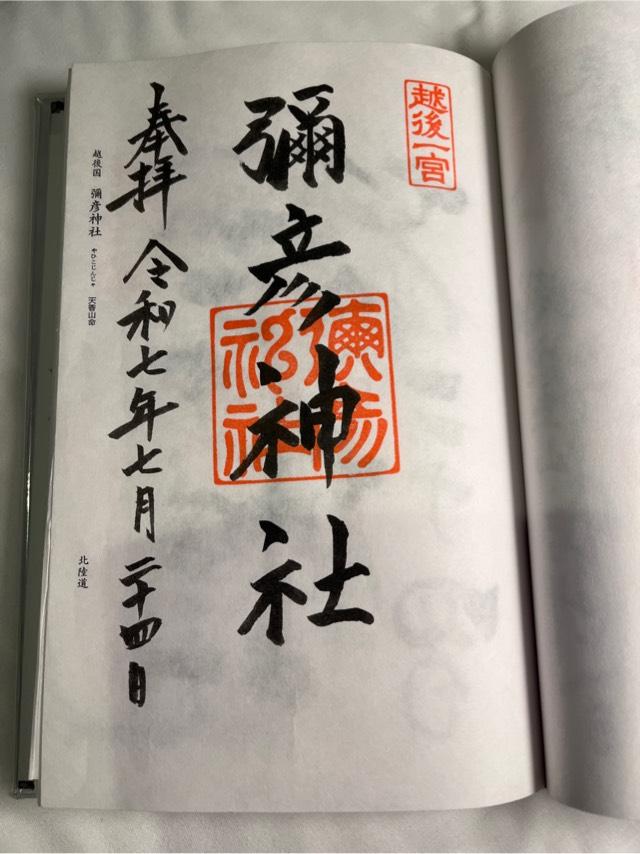 越後一宮
彌彦神社
彌彦神社
奉拝 令和七年七月二十四日
越後国 彌彦神社 やひこじんじゃ 天香山命
北陸道